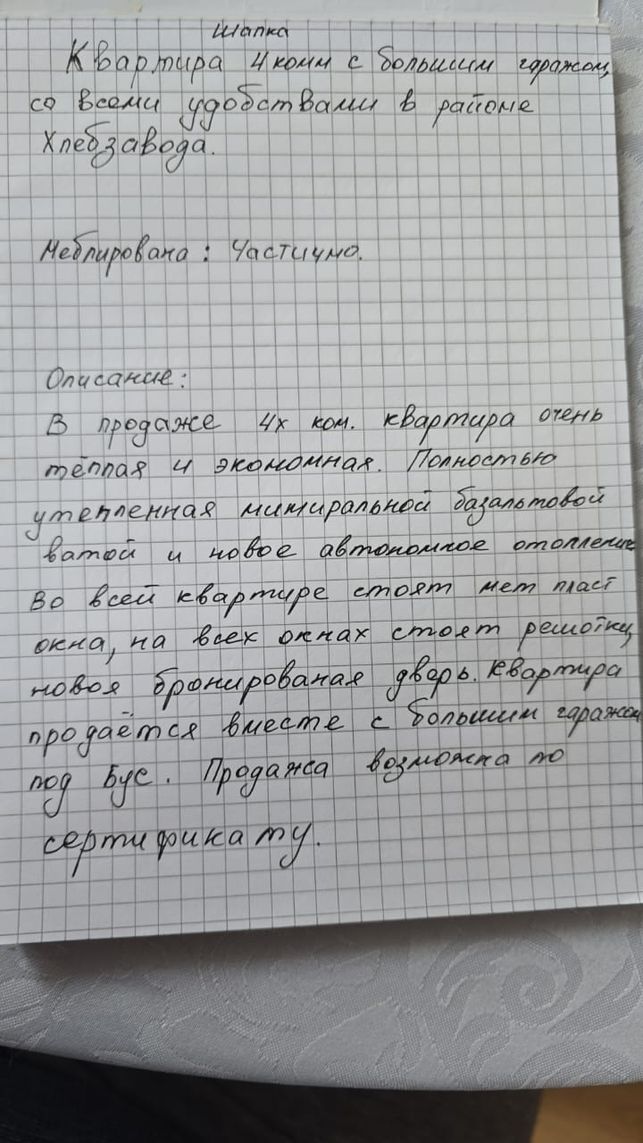 Шапка
Квартира 4 комн с большим гаражом,
со всеми удобствами в районе
Хлебзавода.
Меблирована: Частично.
Описание:
В продаже 4х ком. квартира очень
тёплая и экономная. Полностью
утепленная миниральной базальтовой
ватой и новое автономное отопление
Во всей квартире стоят мет пласт
окна, на всех окнах стоят решотки,
новоя бронированая дверь. Квартира
продаётся вместе с большим гаражом
под Бус. Продажа возможна по
сертификату.